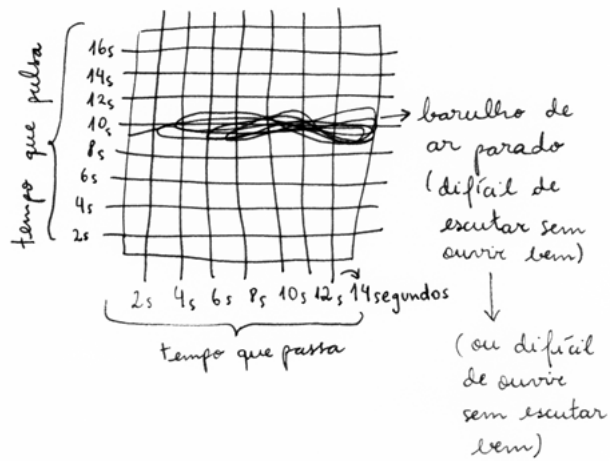 tempo que pulsa
16s
14s
12s
10s
8s
6s
4s
2s
2s 4s 6s 8s 10s 12s 14 segundos
tempo que passa
barulho de
ar parado
(difícil de
escutar sem
ouvir bem)
(ou difícil
de ouvir
sem escutar
bem)